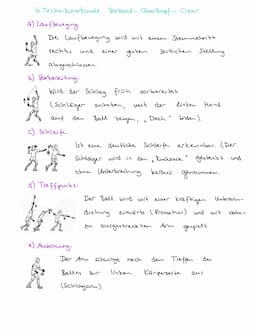 6 Technikmerkmale Vorhand-Überkopf-Clear
a) Laufbewegung
Die Laufbewegung wird mit einem Stemmschritt
rechts und einer guten seitlichen Stellung
abgeschlossen.
b) Vorbereitung:
Wird der Schlag früh vorbereitet
(Schläger anheben, mit der linken Hand
auf den Ball zeigen, "Dach" bilden).
c) Schleife:
Ist eine deutliche Schleife erkennbar. (Der
Schläger wird in den "Rucksack" gesteckt und
ohne Unterbrechung heraus genommen.
d) Treffpunkt:
Der Ball wird mit einer kräftigen Unterarm-
drehung einwärts (Pronation) und mit
ausgestrecktem Arm gespielt.
e) Ausschwung:
Der Arm schwingt nach dem Treffen des
Balles zur linken Körperseite aus
(Schlagarm).